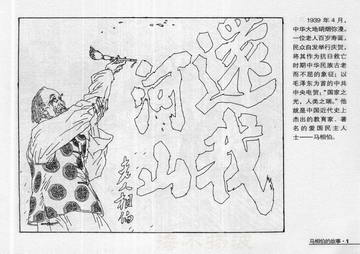 还我
河山
老人相伯
1939年4月,
中华大地硝烟弥漫。
一位老人百岁寿诞,
民众自发举行庆贺,
将其作为抗日救亡
时期中华民族古老
而不屈的象征;以
毛泽东为首的中共
中央电贺:“国家之
光,人类之瑞。”他
就是中国近代史上
杰出的教育家、著
名的爱国民主人
士——马相伯。
马相伯的故事·1